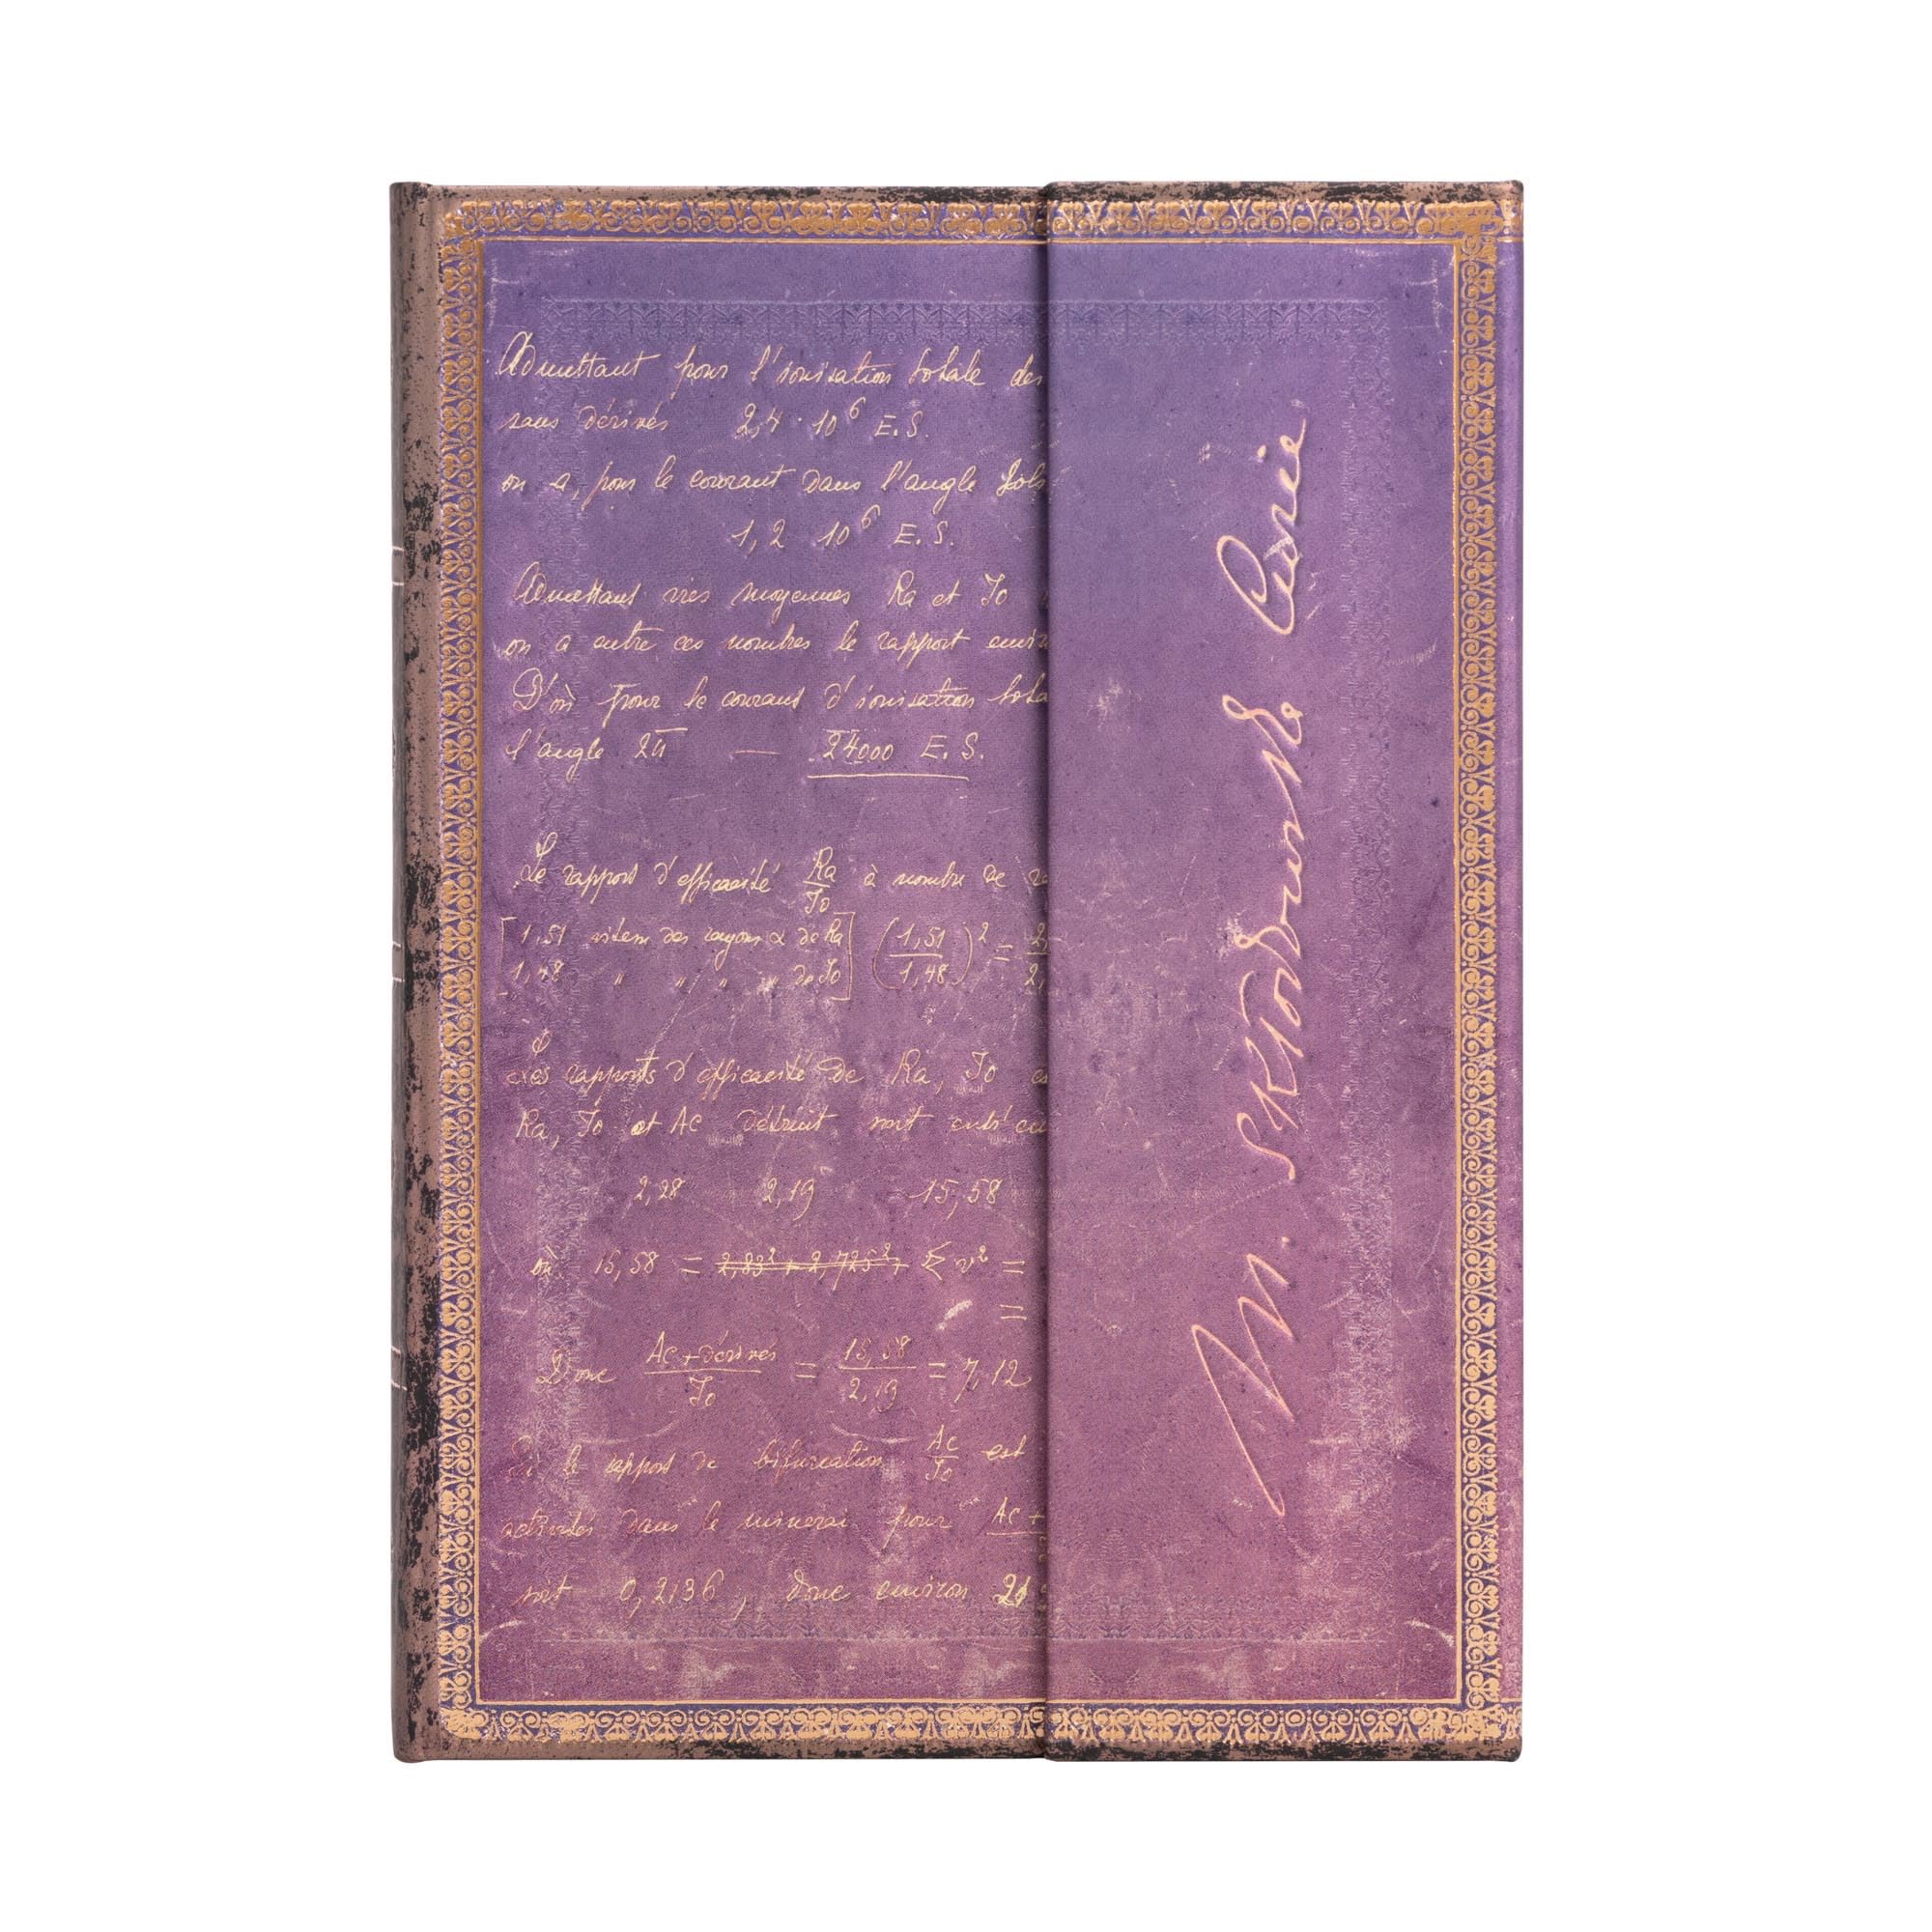 Admettant pour l'ionisation totale des
sans dérivés 2,4 · 10⁶ E.S.
on a, pour le courant dans l'angle
1,2 10⁶ E.S.
Admettant vies moyennes Ra et Io
on a entre ces nombres le rapport envir
D'où pour le courant d'ionisation tota
l'angle 2π — 24000 E.S.
Le rapport d'efficacité Ra/Io à nombre de
[1,51 vitesse des rayons α de Ra
1,48 " " " " de Io] (1,51/1,48)² =
Les rapports d'efficacité de Ra, Io
Ra, Io et Ac détruit sont
2,28 2,19 15,58
où 15,58 = 2,83² + 2,725² + Σ v² =
=
Donc Ac + dérivés/Io = 15,58/2,19 = 7,12
Si le rapport de bifurcation Ac/Io est
activités dans le minerai pour Ac +
soit 0,2136, donc environ
M. Skłodowska Curie